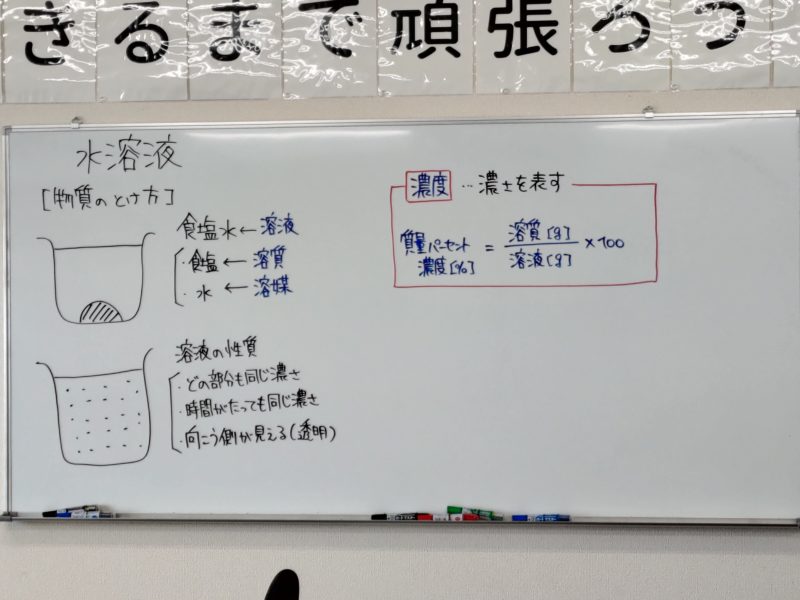 きるまで頑張ろう
水溶液
[物質のとけ方]
食塩水←溶液
・食塩←溶質
・水←溶媒
溶液の性質
・どの部分も同じ濃さ
・時間がたっても同じ濃さ
・向こう側が見える(透明)
濃度…濃さを表す
質量パーセント濃度[%] = 溶質[g]/溶液[g] ×100